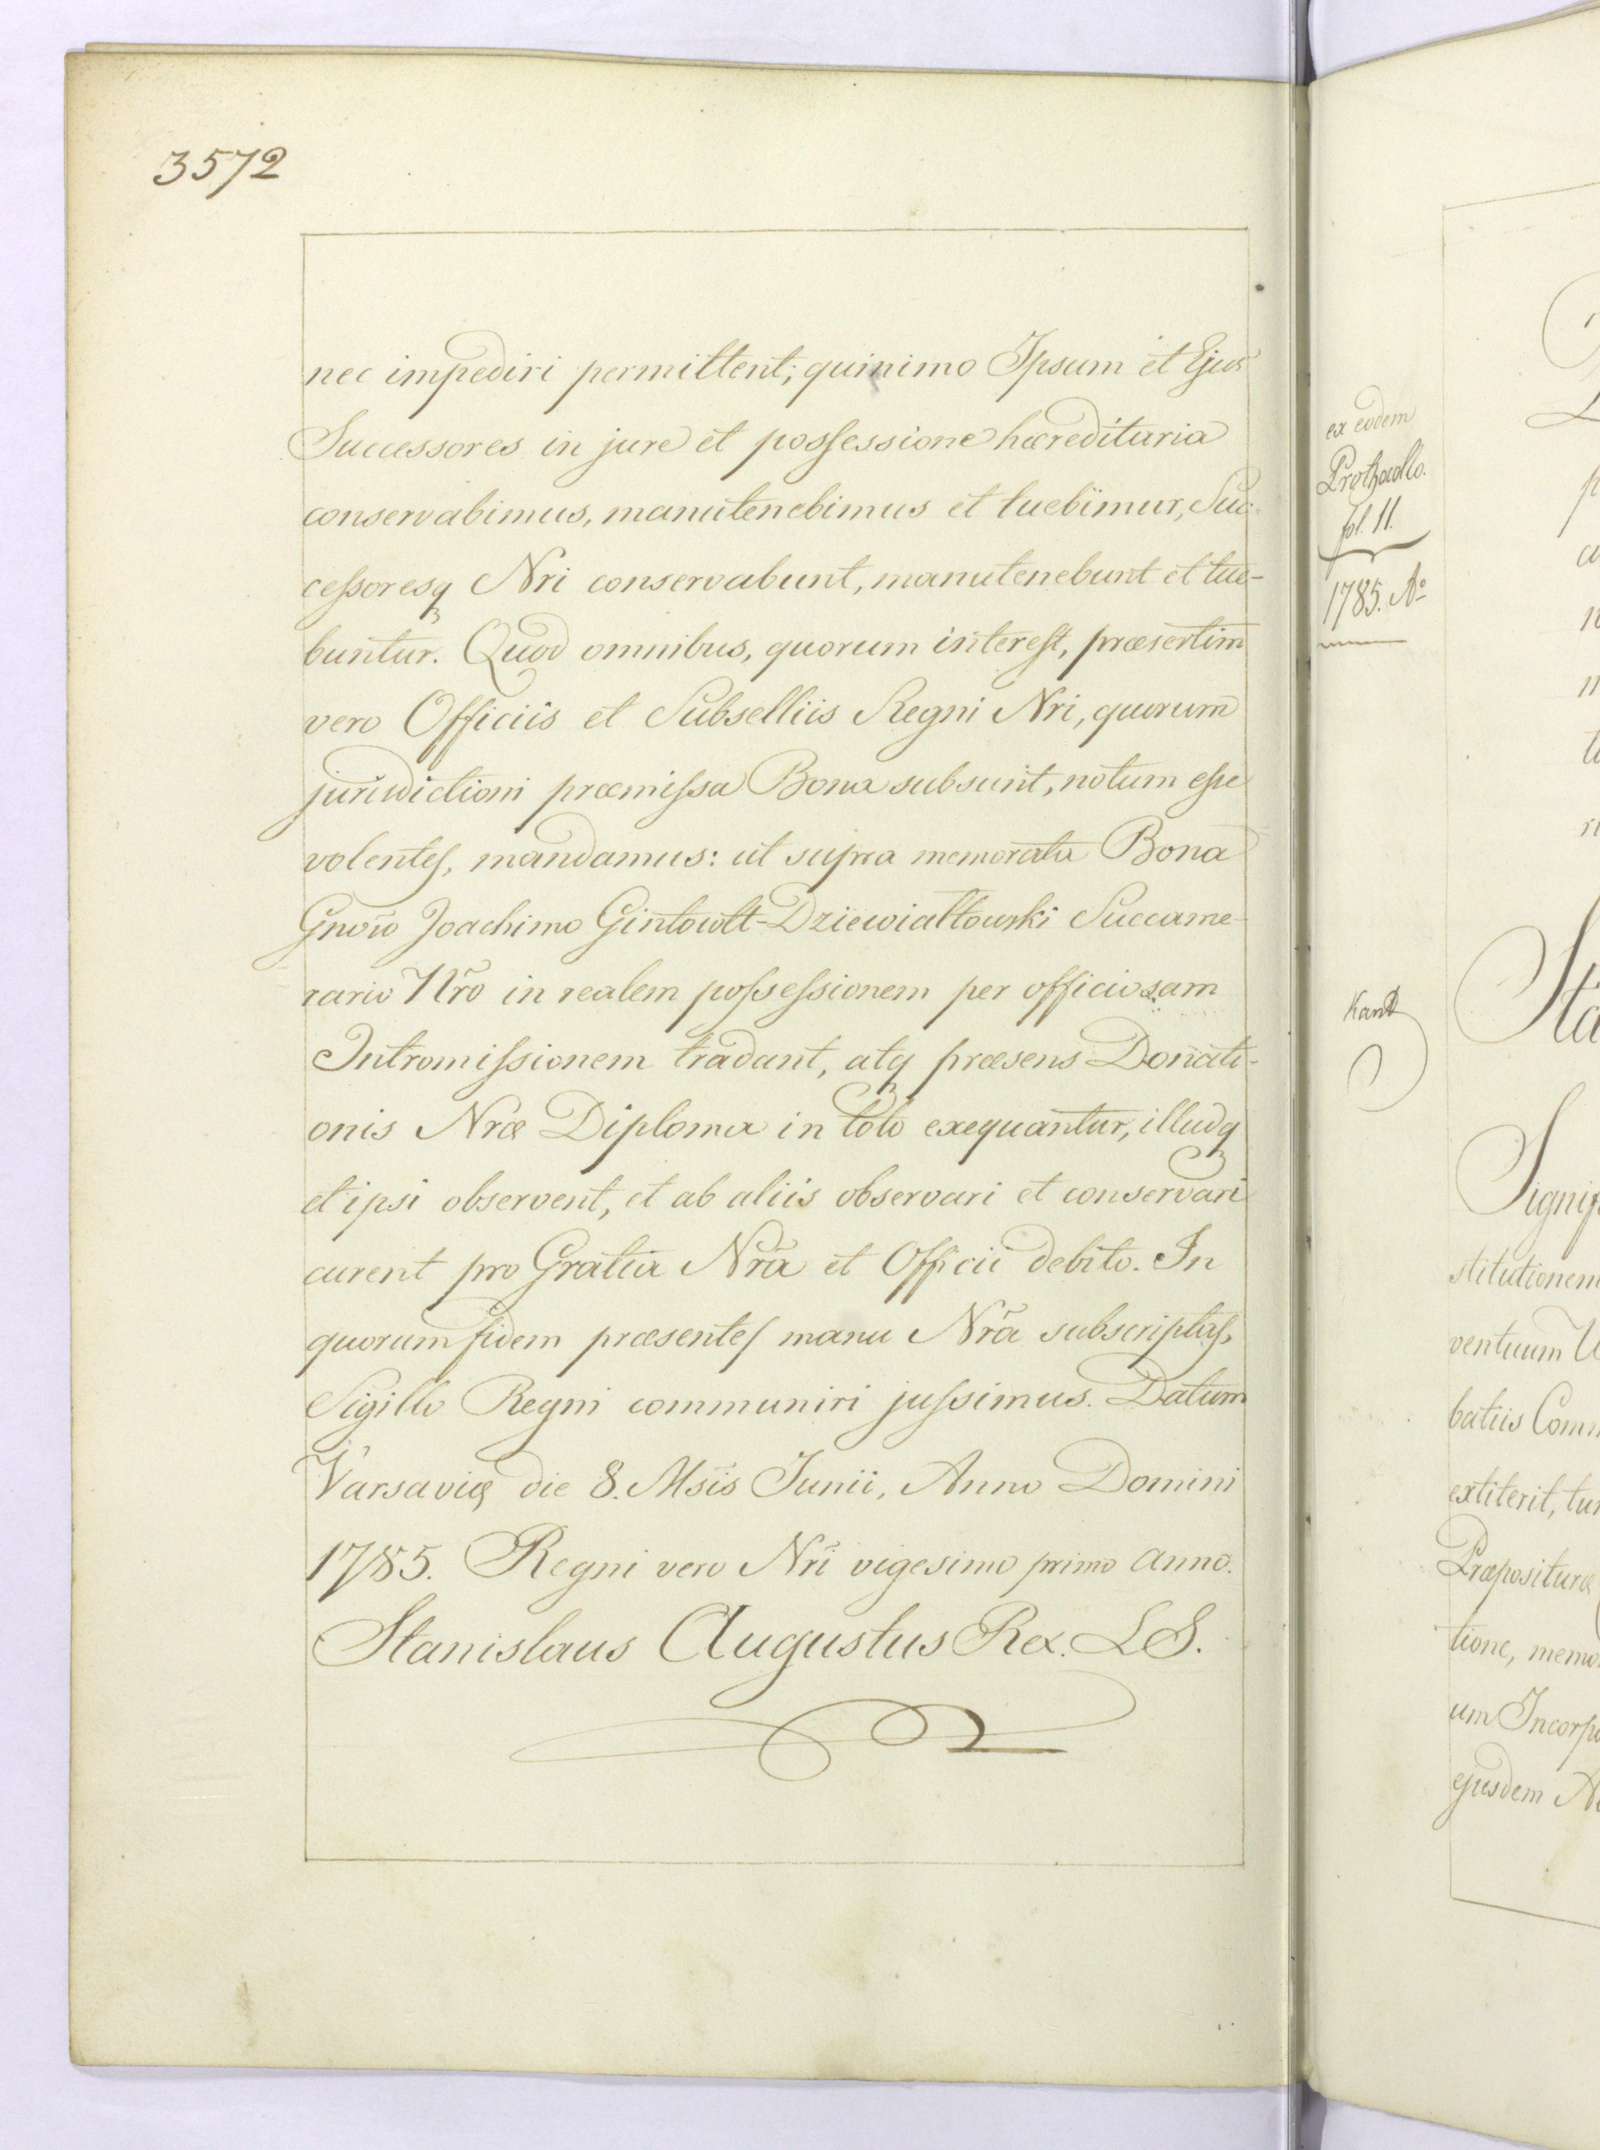 3572
nec impediri permittent; quinimo Ipsum et Ejus
Successores in jure et possessione hæreditaria
conservabimus, manutenebimus et tuebimur, Suc-
cessoresq Nri conservabunt, manutenebunt et tue-
buntur. Quod omnibus, quorum interest, præsertim
vero Officiis et Subselliis Regni Nri, quorum
jurisdictioni præmissa Bona subsunt, notum esse
volentes, mandamus: ut supra memorata Bona
Joachimo Gintowtt-Dziewiałtowski Succame-
rario Nro in realem possessionem per officiosam
Intromissionem tradant, atq præsens Donati-
onis Nræ Diploma in toto exequantur, illudq
et ipsi observent, et ab aliis observari et conservari
curent pro Gratia Nra et Officii debito. In
quorum fidem præsentes manu Nra subscriptas,
Sigillo Regni communiri jussimus. Datum
Varsaviæ die 8. Msis Junii, Anno Domini
1785. Regni vero Nri vigesimo primo anno.
Stanislaus Augustus Rex. LS.
ex eodem
fol. 11.
1785. Aº
Signif
stitutionem
ventuum
batiis Comm
extiterit, tu
Præposituræ
tione, memo
um Incorpo
ejusdem